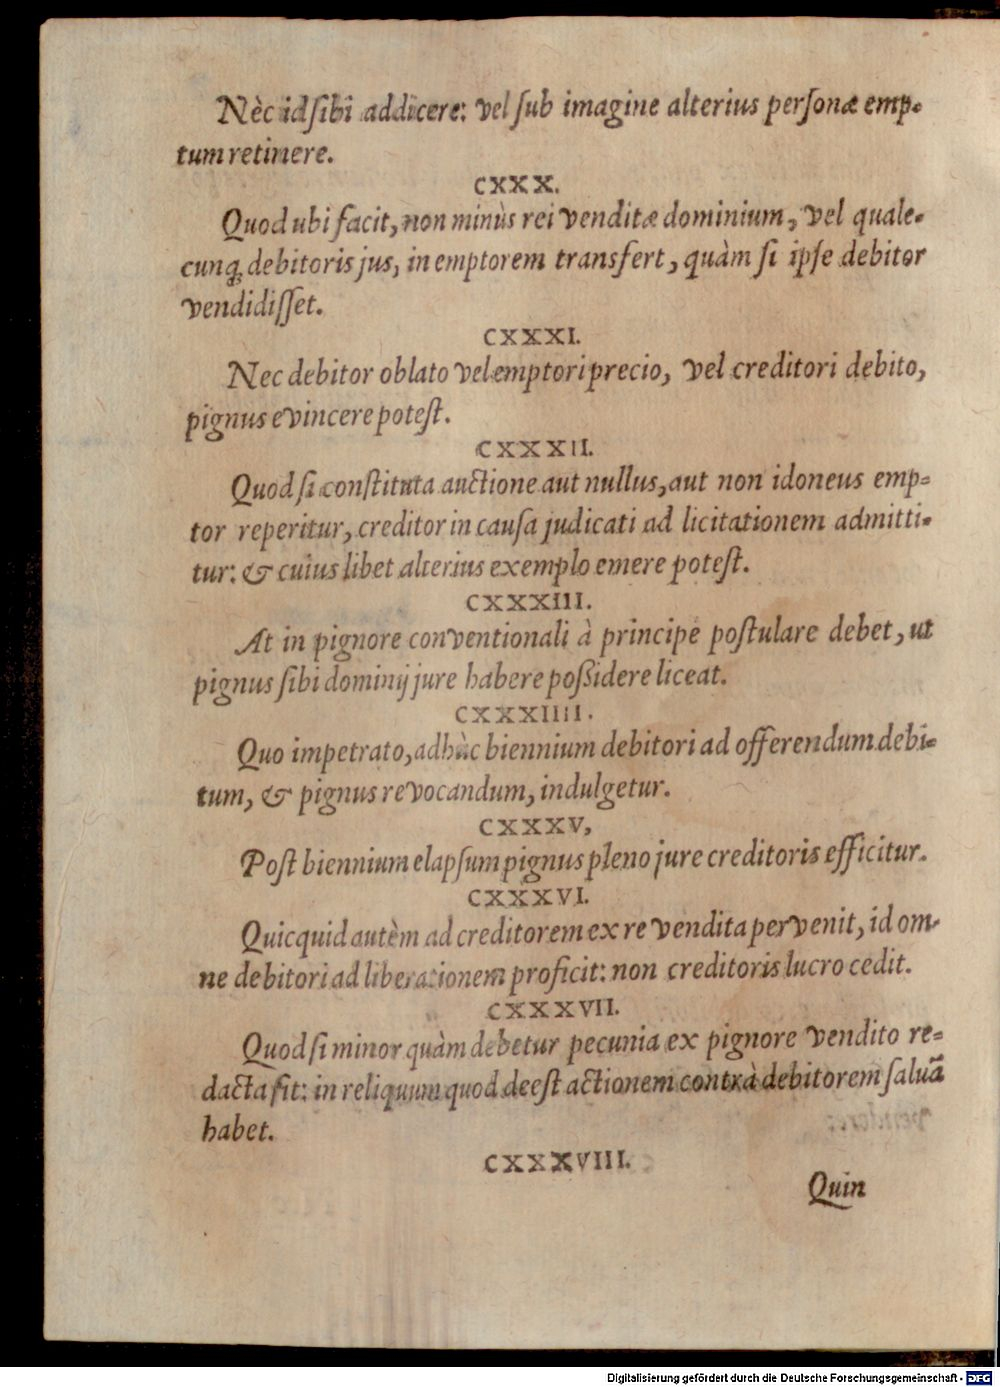 Nèc id ſibi addicere: vel ſub imagine alterius perſonæ emp-
tum retinere.
CXXX.
Quod ubi facit, non minùs rei venditæ dominium, vel quale-
cunq; debitoris jus, in emptorem transfert, quàm ſi ipſe debitor
vendidiſſet.
CXXXI.
Nec debitor oblato vel emptori precio, vel creditori debito,
pignus evincere poteſt.
CXXXII.
Quod ſi conſtituta auctione aut nullus, aut non idoneus emp-
tor reperitur, creditor in cauſa judicati ad licitationem admitti-
tur: & cuius libet alterius exemplo emere poteſt.
CXXXIII.
At in pignore conventionali à principe poſtulare debet, ut
pignus ſibi dominij jure habere poßidere liceat.
CXXXIIII.
Quo impetrato, adhùc biennium debitori ad offerendum debi-
tum, & pignus revocandum, indulgetur.
CXXXV,
Poſt biennium elapſum pignus pleno jure creditoris efficitur.
CXXXVI.
Quicquid autèm ad creditorem ex re vendita pervenit, id om-
ne debitori ad liberationem proficit: non creditoris lucro cedit.
CXXXVII.
Quod ſi minor quàm debetur pecunia ex pignore vendito re-
dacta ſit: in reliquum quod deeſt actionem contrà debitorem ſaluã
habet.
CXXXVIII.
Quin
Digitalisierung gefördert durch die Deutsche Forschungsgemeinschaft - DFG